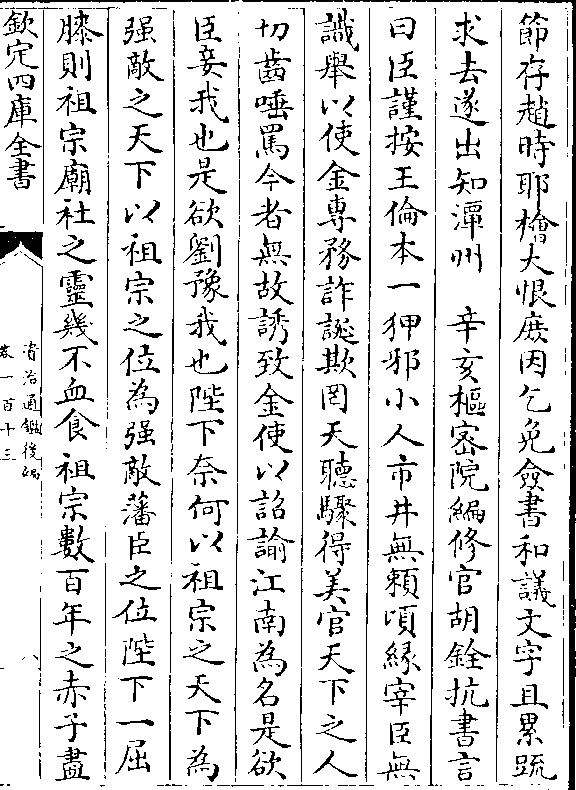 節存趙時耶檜大恨庶因乞免僉書和議文字且累䟽
求去遂出知潭州　辛亥樞密院編修官胡銓抗書言
曰臣謹按王倫本一狎邪小人市井無賴頃緣宰臣無
識舉以使金專務詐誕欺罔天聽驟得美官天下之人
切齒唾罵今者無故誘致金使以詔諭江南為名是欲
臣妾我也是欲劉豫我也陛下奈何以祖宗之天下為
强敵之天下以祖宗之位為强敵藩臣之位陛下一屈
膝則祖宗廟社之靈幾不血食祖宗數百年之赤子盡
欽定四庫全書
資治通鑑後編
卷一百十三
八